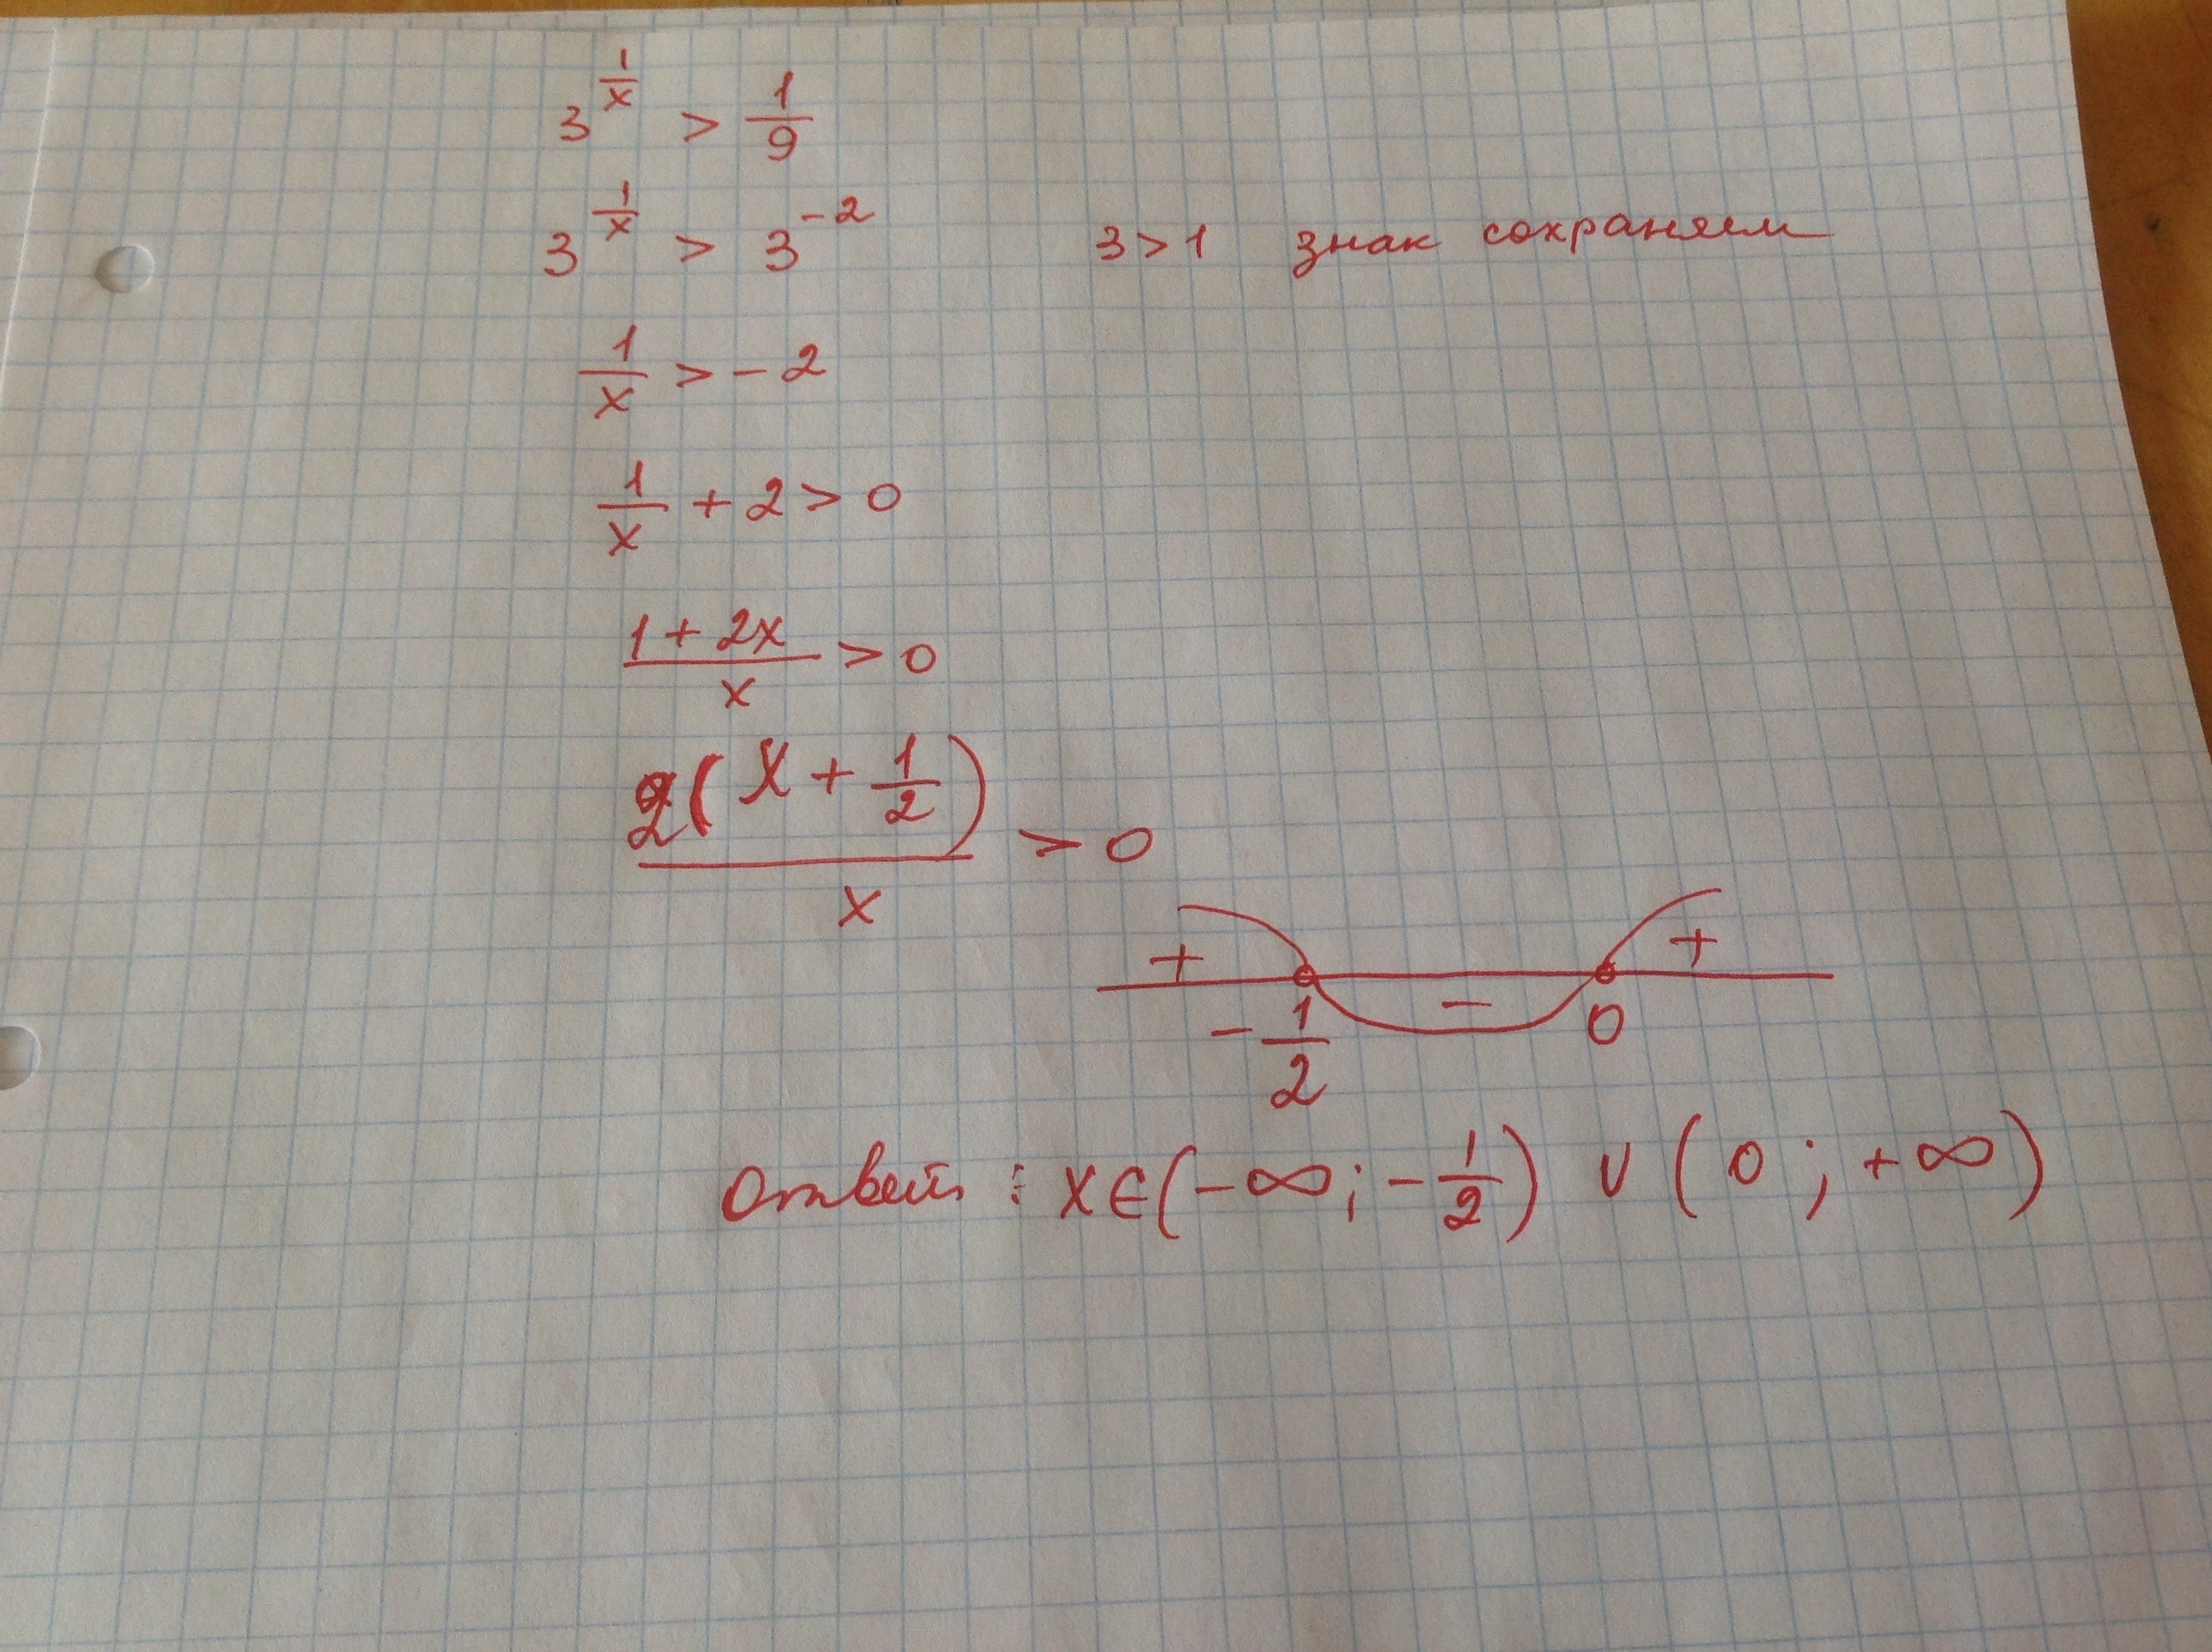 3^(1/x) > 1/9
3^(1/x) > 3^(-2) 3>1 знак сохраняем
1/x > -2
1/x + 2 > 0
(1+2x)/x > 0
2(x + 1/2)/x > 0
+ - +
-1/2 0
Ответ: x∈(-∞; -1/2) ∪ (0; +∞)